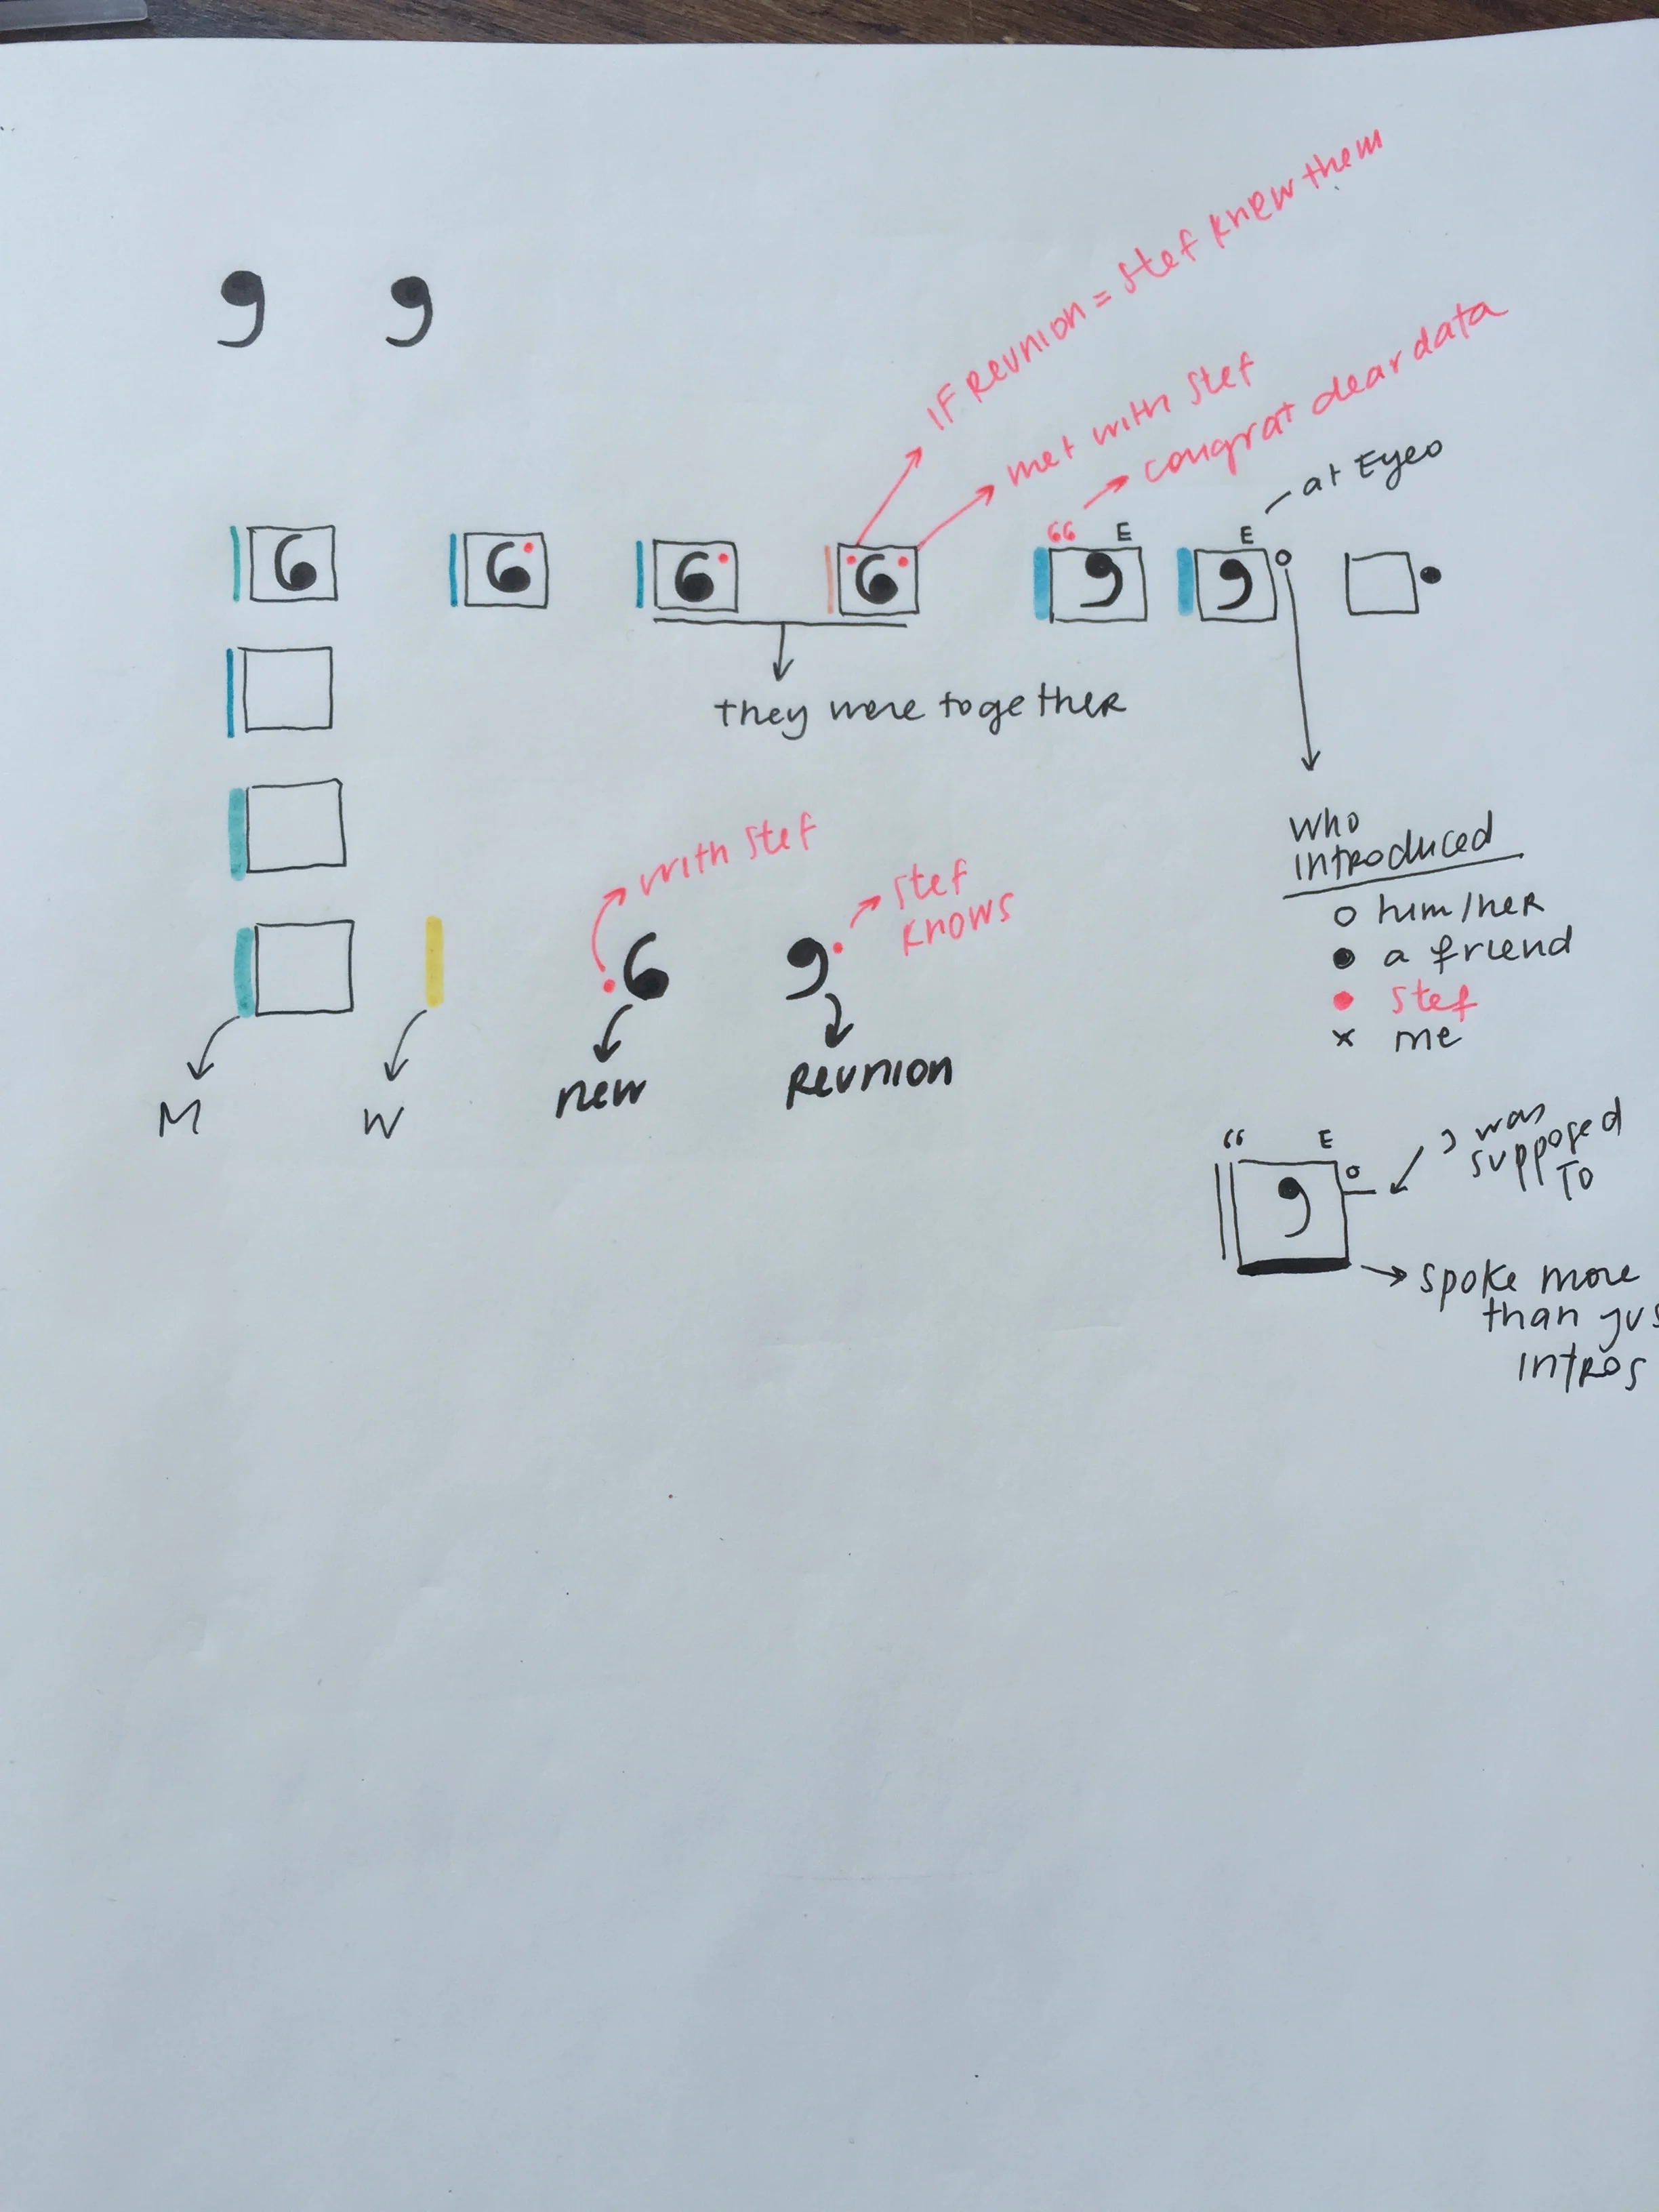 IF REUNION = Stef knew them
met with Stef
congrat dear data
at Eyeo
“ E E
they were together
with Stef
Stef
knows
who
introduced
him/her
a friend
Stef
x me
new
Reunion
M W
“ E
I was
supposed
To
spoke more
than
intros